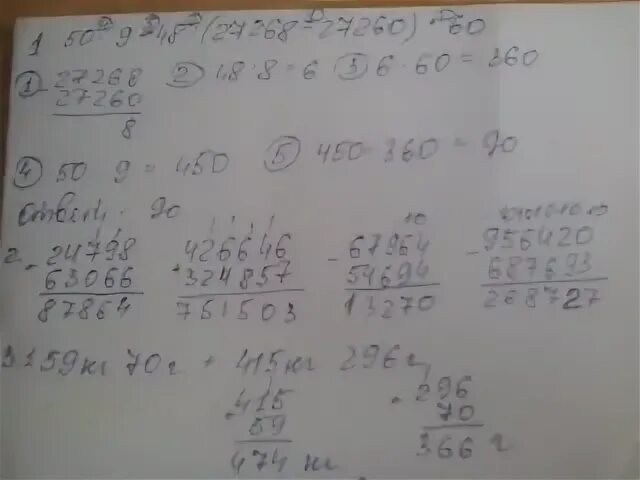 1 50 9 48 (27268-27260) 60
① 27268 ② 48:8=6 ③ 6·60=360
27260
8
④ 50 9=450 ⑤ 450 360=90
ответ: 90
1 1 1 1 10
2 24798 426646 -67964 -956420
63066 +324857 54694 687693
87864 751503 13270 268727
3 59кг 70г + 415кг 296г
415 296
59 70
474 кг 366 г